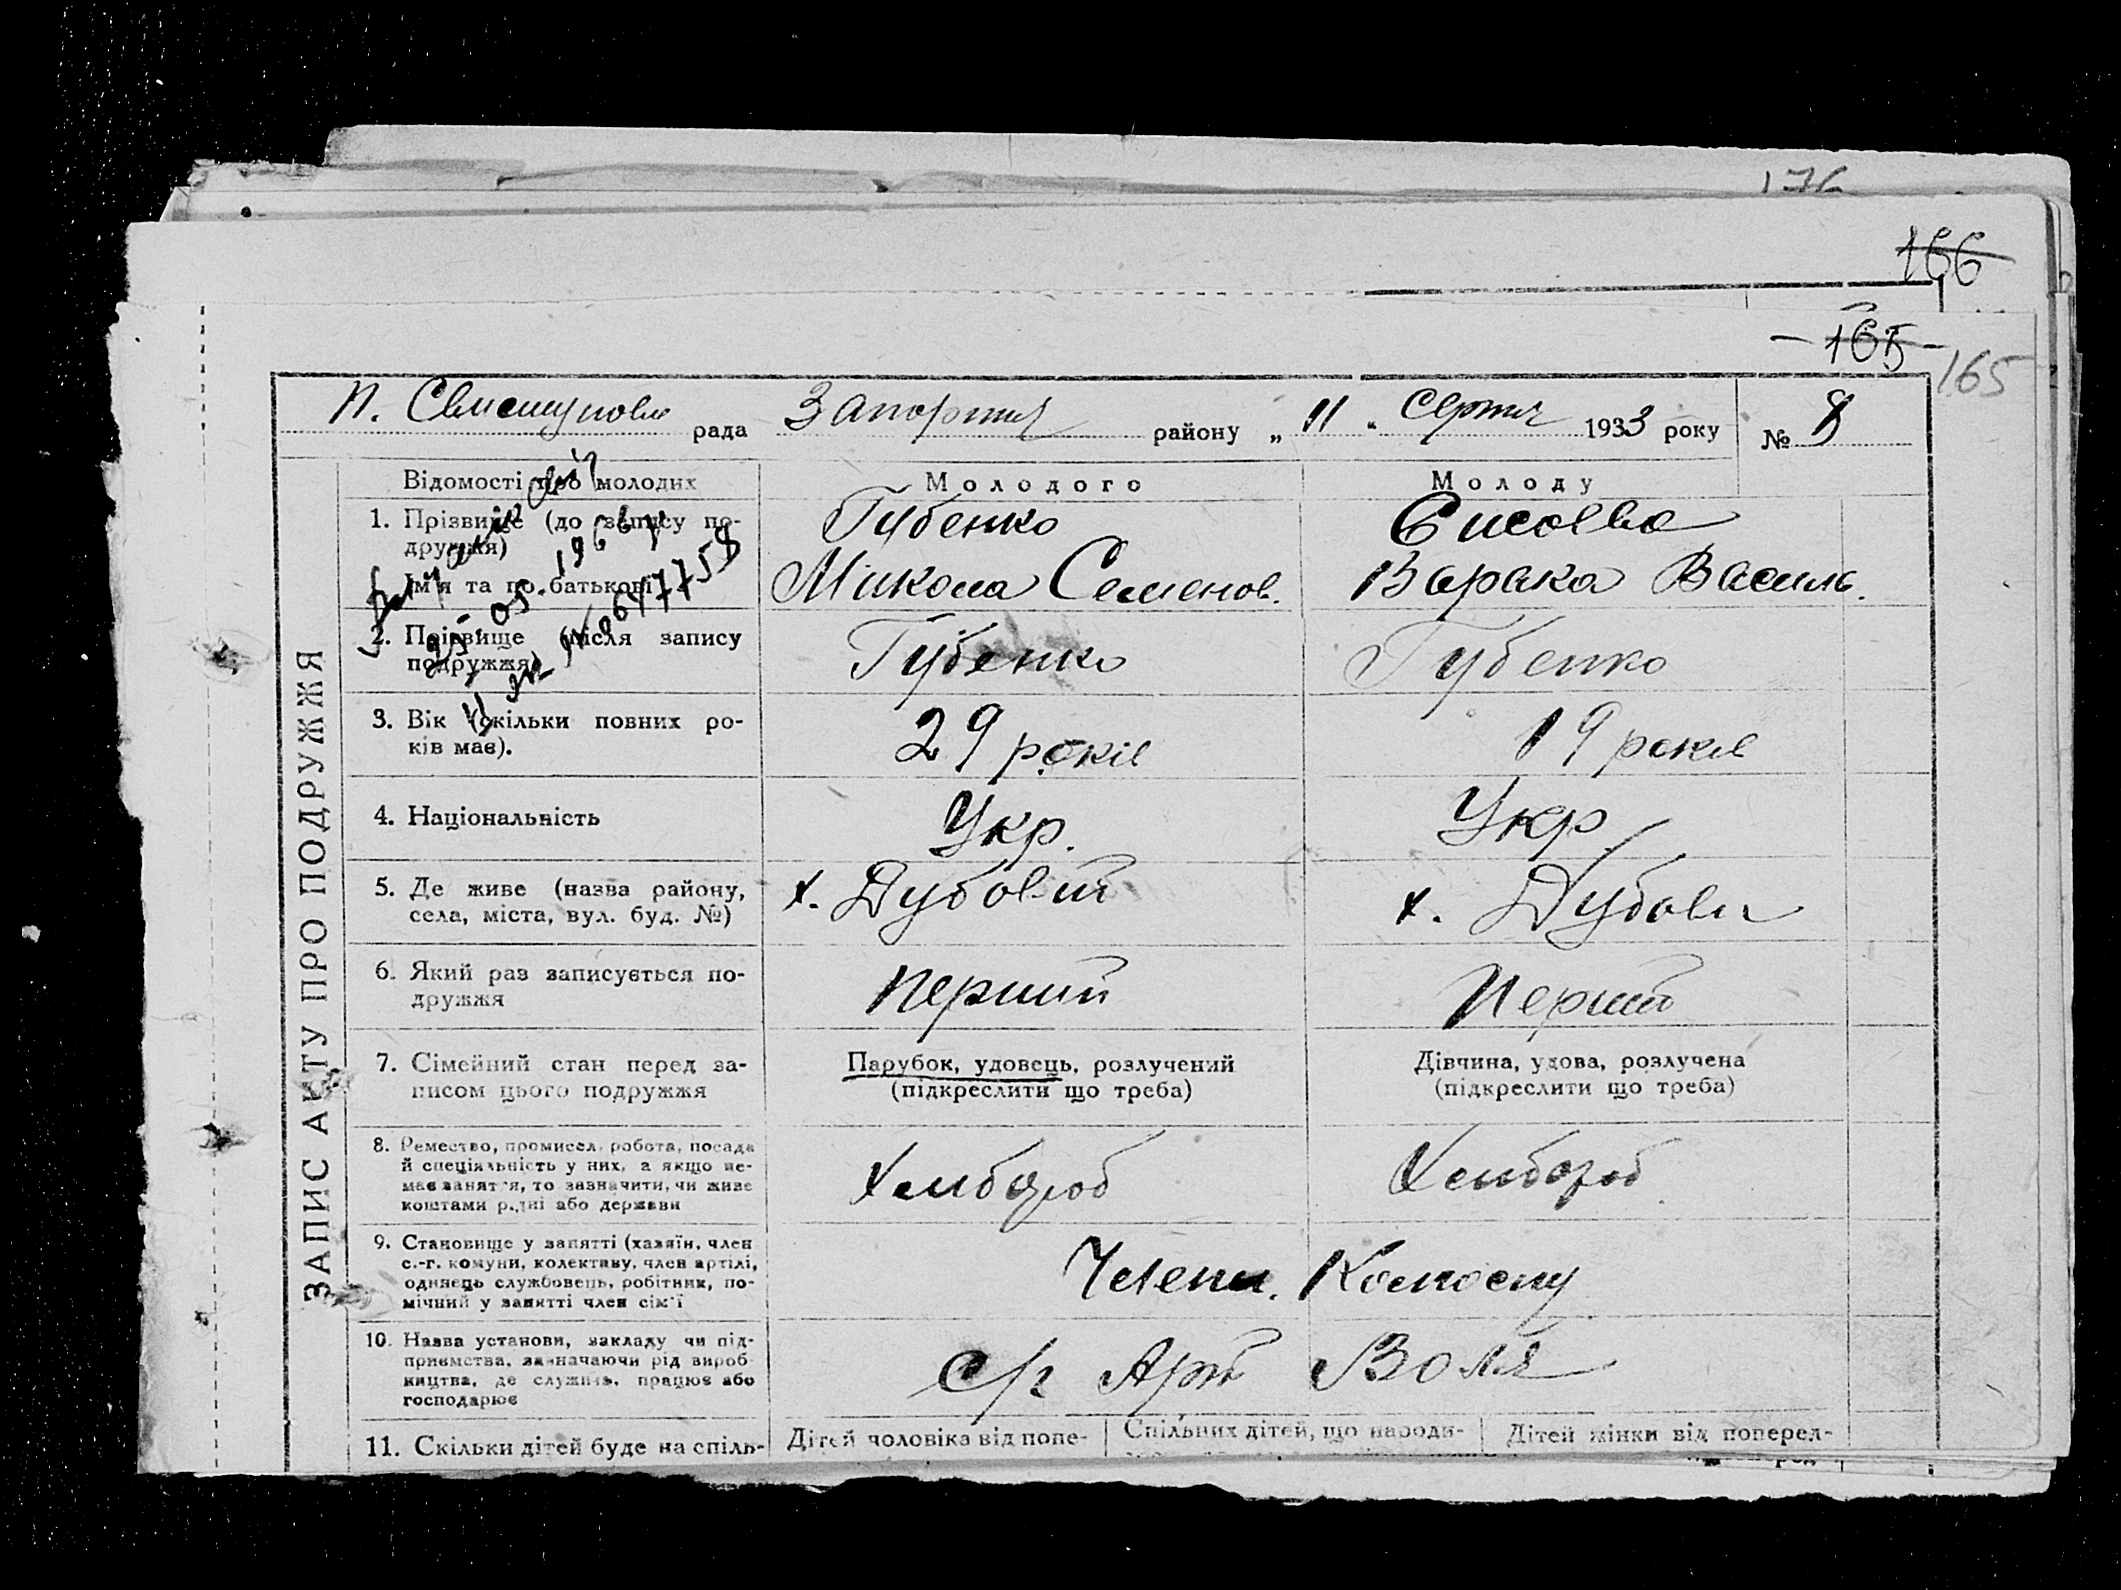 176
166
165
165
рада
району „ 11 “ Серпня 1933 року
№ 8
ЗАПИС АКТУ ПРО ПОДРУЖЖЯ
Відомості про молодих
Молодого
Молоду
1. Прізвище (до запису по-
дружжя)
Губенко
Ім'я та по батькові
Микола Семенов.
Варака Василь.
2. Прізвище (після запису
подружжя)
Губенко
Губенко
3. Вік (скільки повних ро-
ків має).
29 років
19 років
4. Національність
Укр.
Укр.
5. Де живе (назва району,
села, міста, вул. буд. №)
х. Дубовий
х. Дубовий
6. Який раз записується по-
дружжя
Перший
Перший
7. Сімейний стан перед за-
писом цього подружжя
Парубок, удовець, розлучений
(підкреслити що треба)
Дівчина, удова, розлучена
(підкреслити що треба)
8. Ремество, промисел, робота, посада
й спеціяльність у них, а якщо не-
має заняття, то зазначити, чи живе
коштами рідні або держави
Хлібороб
Хлібороб
9. Становище у занятті (хазяїн, член
с.-г. комуни, колективу, член артілі,
одинець службовець, робітник, по-
мічний у занятті член сім'ї
Члени Колгоспу
10. Назва установи, закладу чи під-
приємства, зазначаючи рід вироб-
ництва, де служить, працює або
господарює
с/г Арт Воля
11. Скільки дітей буде на спіль-
Дітей чоловіка від попе-
Спільних дітей, що народи-
Дітей жінки від поперед-